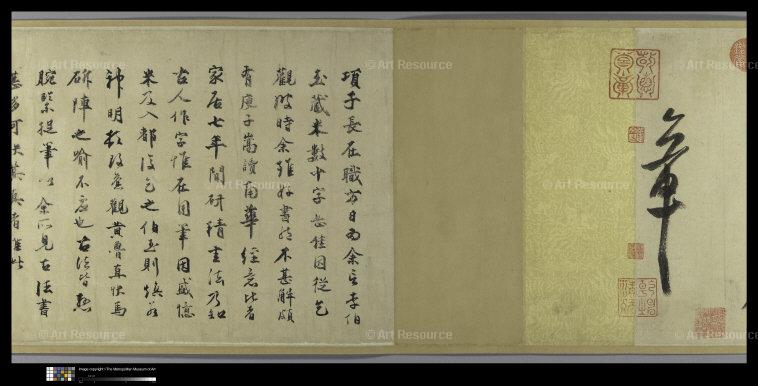 章
項子長在職方日為余言李伯
玉藏米數十字甚佳因從乞
觀時余雖好書然不甚解頗
有庾子嵩讀南華經意比者
家居七年閒研精書法乃知
古人作字惟在用筆因感憶
米及入都復乞之伯玉則慎若
神明觀黃魯直快馬
斫陣之喻不虛也古法皆懸
腕緊提筆以余所見古法書
© Art Resource
© Art Resource
© Art Resource
© Art Resource
© Art Resource
© Art Resource
© Art Resource
© Art Resource
© Art Resource
Image copyright © The Metropolitan Museum of Art